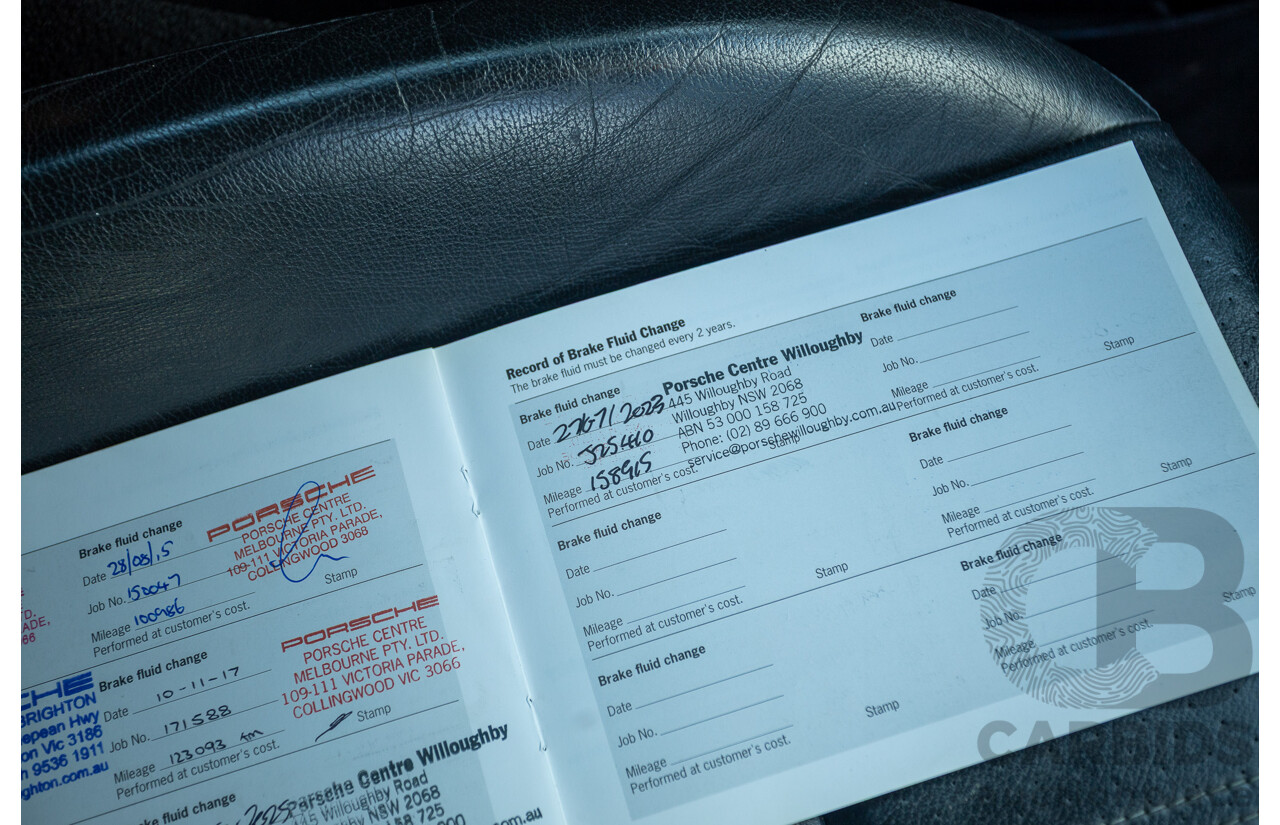 Brake fluid change
Date 28/08/15
Job No. 150047
Mileage 100986
Performed at customer's cost.
PORSCHE
PORSCHE CENTRE
MELBOURNE PTY. LTD.
109-111 VICTORIA PARADE,
COLLINGWOOD 3068
Stamp
Brake fluid change
Date 10-11-17
Job No. 171588
Mileage 123093 km
Performed at customer's cost.
PORSCHE
PORSCHE CENTRE
MELBOURNE PTY. LTD.
109-111 VICTORIA PARADE,
COLLINGWOOD VIC 3066
Stamp
BRIGHTON
Vic 3186
9536 1911
.com.au
fluid change
Porsche Centre Willoughby
445 Willoughby Road
Willoughby NSW 2068
Record of Brake Fluid Change
The brake fluid must be changed every 2 years.
Brake fluid change
Date 27/07/2023
Job No. J25410
Mileage 158915
Performed at customer's cost.
Porsche Centre Willoughby
445 Willoughby Road
Willoughby NSW 2068
ABN 53 000 158 725
Phone: (02) 89 666 900
service@porschewilloughby.com.au
Stamp
Brake fluid change
Date
Job No.
Mileage
Performed at customer's cost.
Stamp
Brake fluid change
Date
Job No.
Mileage
Performed at customer's cost.
Stamp
Brake fluid change
Date
Job No.
Mileage
Performed at customer's cost.
Stamp
Brake fluid change
Date
Job No.
Mileage
Performed at customer's cost.
Stamp
Brake fluid change
Date
Job No.
Mileage
Performed at customer's cost.
Stamp
CB